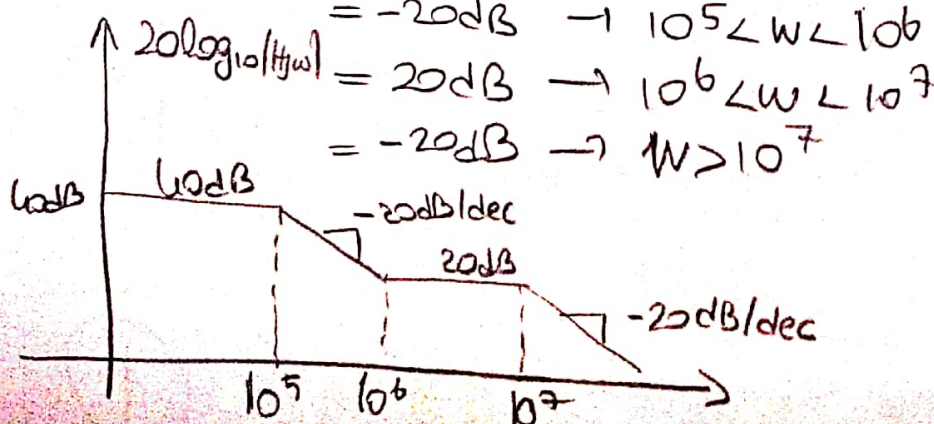 = -20dB → 10⁵<w<10⁶
20log₁₀|H(jw)| = 20dB → 10⁶<w<10⁷
= -20dB → W>10⁷
40dB
40dB
-20dB/dec
20dB
-20dB/dec
10⁵ 10⁶ 10⁷